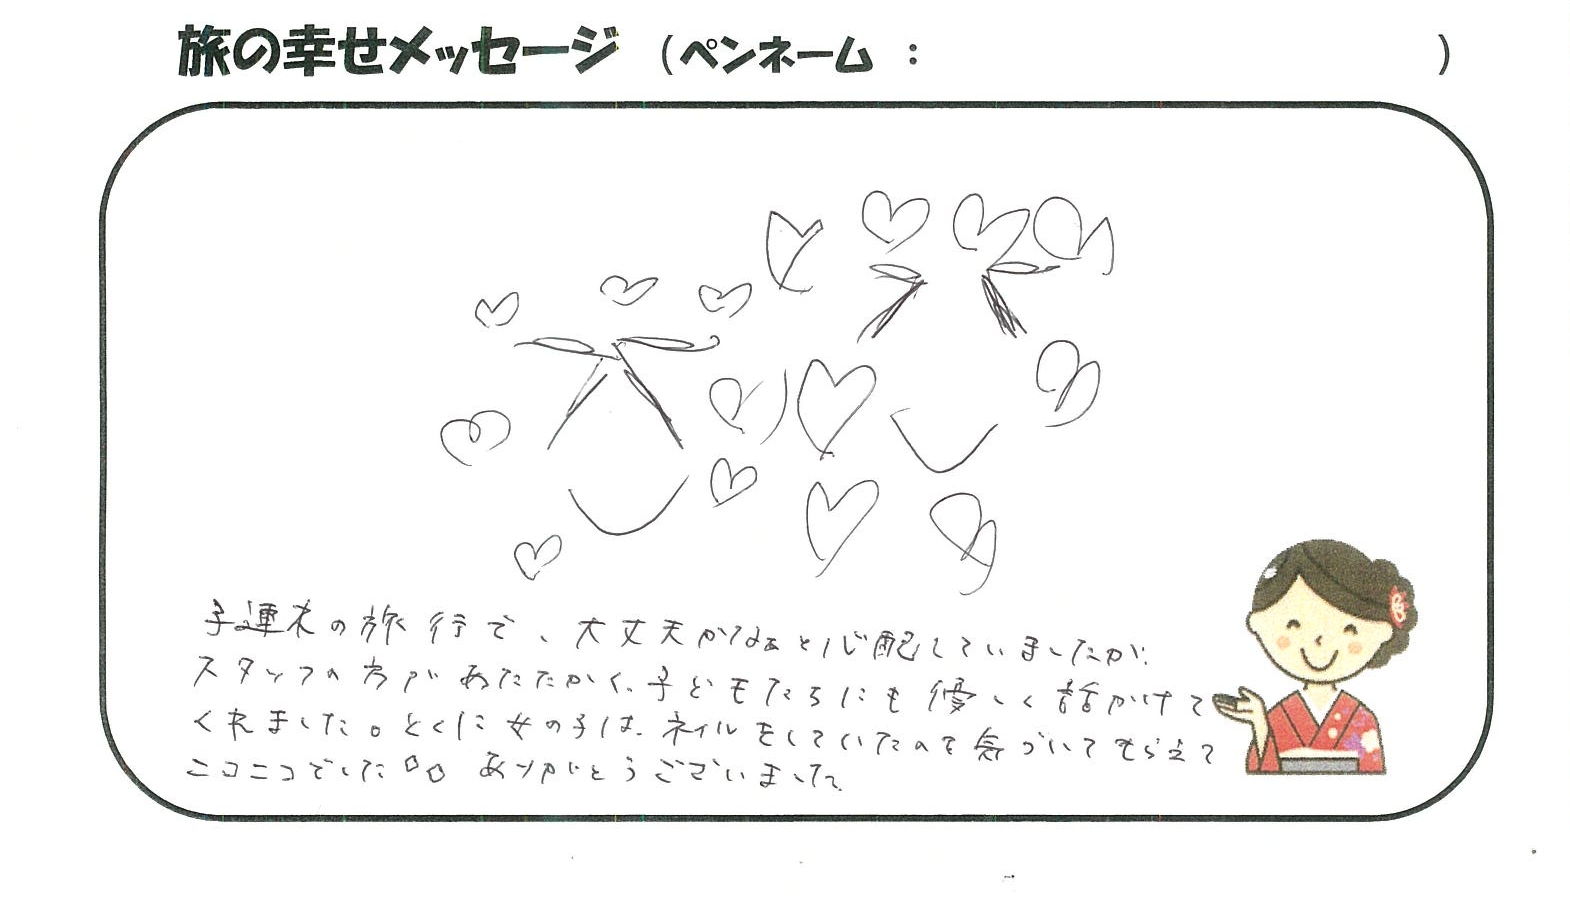 旅の幸せメッセージ (ペンネーム : )
子連れの旅行で、大丈夫かなぁと心配していましたが、
スタッフの方が、あたたかく、子どもたちにも優しく話かけて
くれました。とくに女の子は、ネイルをしていたのを気づいてもらえて
ニコニコでした♡♡ ありがとうございました。